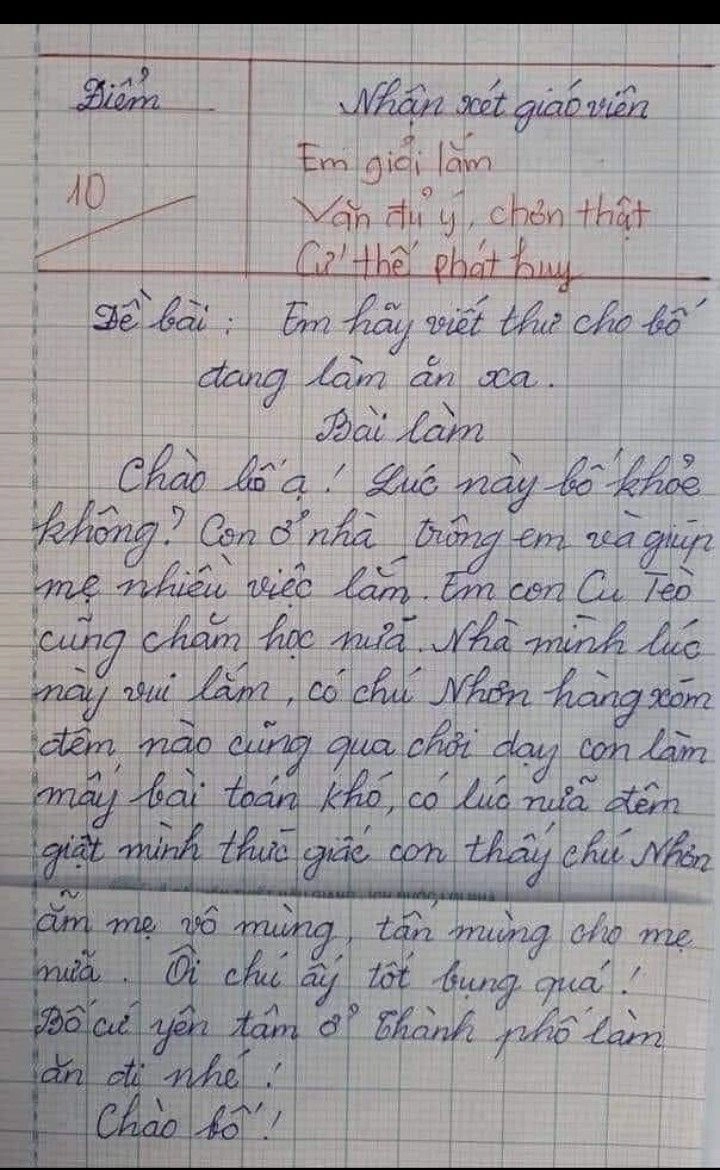 Điểm
Nhận xét giáo viên
10
Em giỏi lắm
Văn đủ ý, chơn thật
Cứ thế phát huy
Đề bài: Em hãy viết thư cho bố
đang làm ăn xa.
Bài làm
Chào bố ạ! Lúc này bố khỏe
không? Con ở nhà trông em và giúp
mẹ nhiều việc lắm. Em con Cu Tèo
cũng chăm học nữa. Nhà mình lúc
này vui lắm, có chú Nhơn hàng xóm
đêm nào cũng qua chơi dạy con làm
mấy bài toán khó, có lúc nữa đêm
giật mình thức giấc con thấy chú Nhơn
ẵm mẹ vô mùng, tấn mùng cho mẹ
nữa. Ôi chú ấy tốt bụng quá!
Bố cứ yên tâm ở Thành phố làm
ăn đi nhé!
Chào bố!